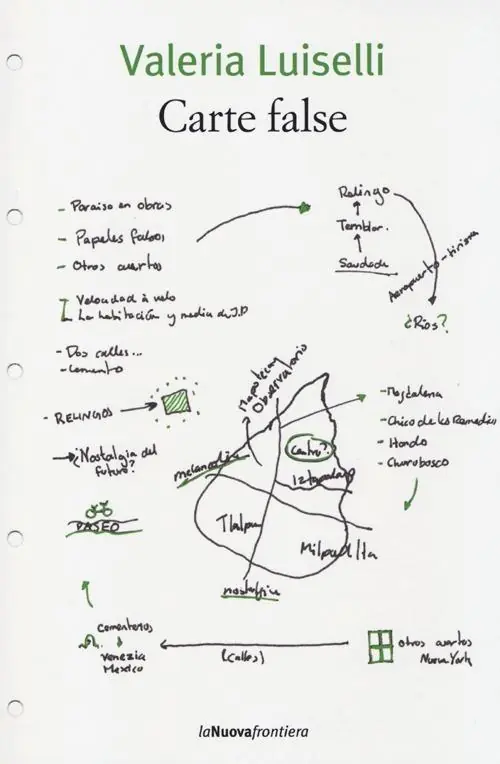 Valeria Luiselli
Carte false
- Paraiso en obras
- Papeles falsos
- Otros cuartos
Velocidad à velo
La habitación y media de J.B
- Dos calles...
- Cemento
- RELINGOS
¿Nostalgia del
futuro?
PASEO
Relingo
Temblor.
Saudade
Aeropuerto -
¿Ríos?
Mapoteca
Observatorio
melancolía
Centro?
Iztapalapa
Tlalpan
Milpa Alta
nostalgia
- Magdalena
- Chico de los Remedios
- Hondo
- Churubosco
cementerios
venezia
Mexico
(calles)
otros cuartos
Nueva York
laNuovafrontiera